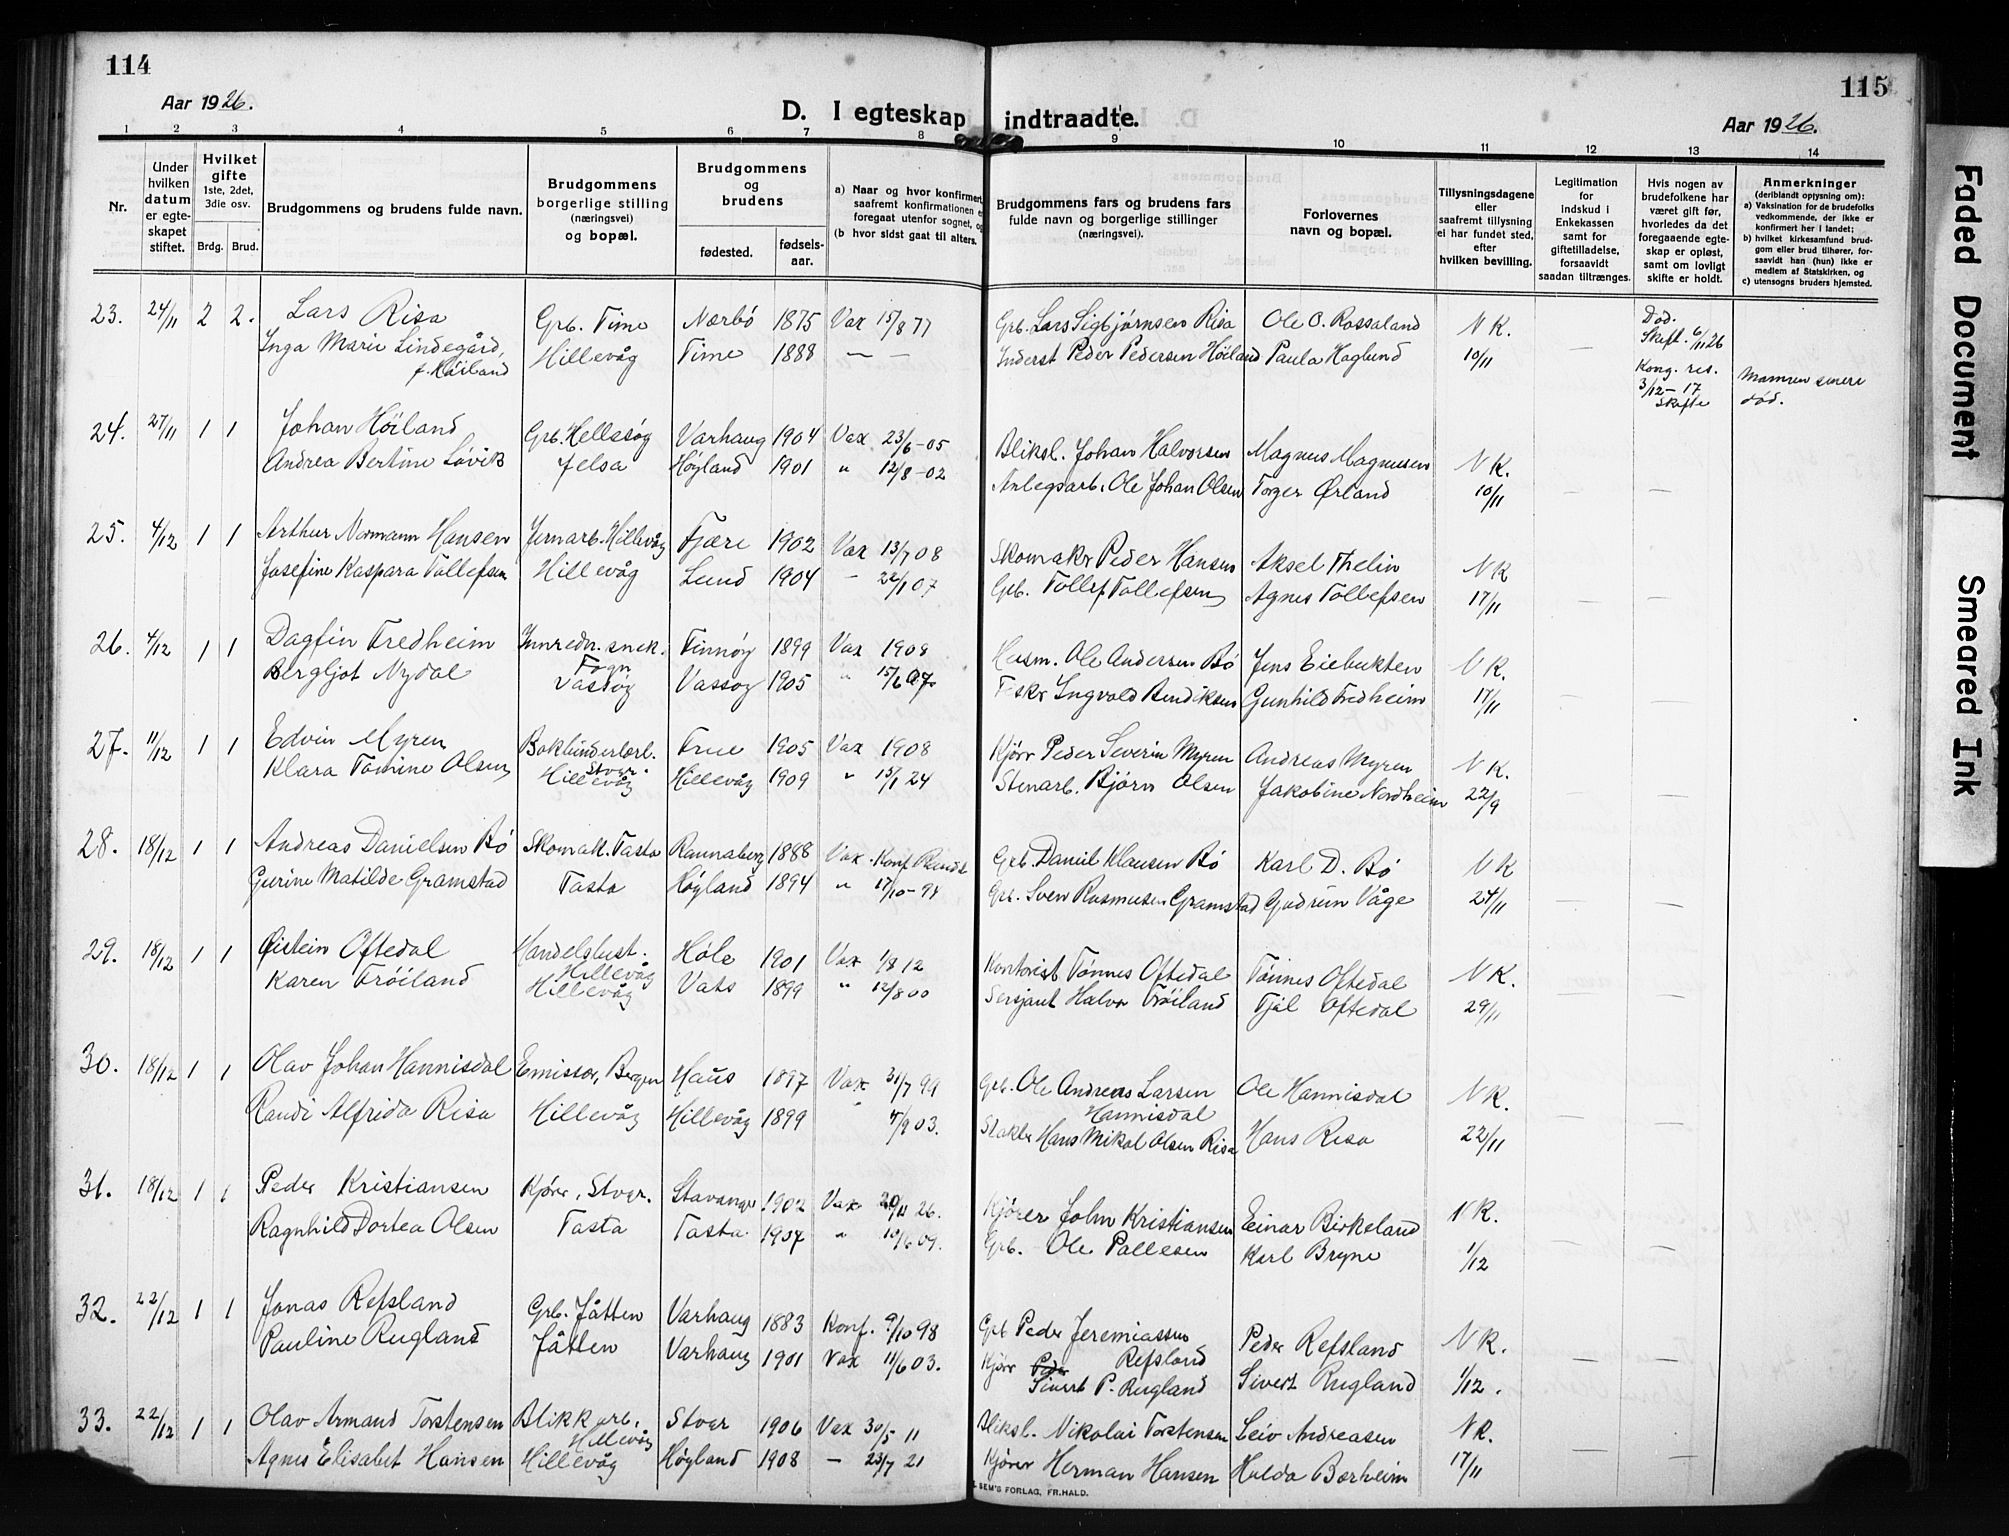 114
115
Aar 1926.
D. I egteskap indtraadte.
Aar 1926.
1 2 3 4 5 6 7 8 9 10 11 12 13 14
Nr.
Under hvilken datum er egteskapet stiftet.
Hvilket gifte
1ste, 2det, 3die osv.
Brdg. Brud.
Brudgommens og brudens fulde navn.
Brudgommens borgerlige stilling (næringsvei) og bopæl.
Brudgommens og brudens
fødested.
fødselsaar.
a) Naar og hvor konfirmert, saafremt konfirmationen er foregaat utenfor sognet, og
(b hvor sidst gaat til alters.
Brudgommens fars og brudens fars fulde navn og borgerlige stillinger (næringsvei).
Forlovernes navn og bopæl.
Tillysningsdagene eller saafremt tillysning ei har fundet sted, efter hvilken bevilling.
Legitimation for Indskud i Enkekassen samt for giftetilladelse, forsaavidt saadan tiltrænges.
Hvis nogen av brudefolkene har været gift før, hvorledes da det foregaaende egteskap er opløst, samt om lovligt skifte er holdt.
Anmerkninger
(deriblandt opysning om):
a) Vaksination for de brudefolks vedkommende, der ikke er konfirmert her i landet;
b) hvilket kirkesamfund brudgom eller brud tilhører, forsaavidt han (hun) ikke er medlem af Statskirken, og
c) utensogns bruders hjemsted.
23. 24/11 2 2. Lars Risa Grb. Time Nærbö 1875 Vax 15/8 77 Grb. Lars Sigbjörnsen Risa Ole O. Rossaland N K. Död. Skift. 6/11 26
Inga Marie Lindegård, f. Höiland Hillevåg Time 1888 — — Inderst Peder Pedersen Höiland Paula Haglund 10/11 — Kong. res. 3/12-17 Skifte Mannen senere död.
24. 27/11 1 1 Johan Höiland Grb. Hellesög Varhaug 1904 Vax 23/6-05 Bliksl. Johan Halvorsen Magnus Magnusen N K.
Andrea Bertine Lövik Jelsa Høyland 1901 " 12/8-02 Anlegsarb. Ole Johan Olsen Torger Ørland 10/11 — —
25. 4/12 1 1 Arthur Normann Hansen Jernarb. Hillevåg Fjære 1902 Vax 13/7 08 Skomakr Peder Hansen Aksel Thelin N K
Josefine Kaspara Tollefsen Hillevåg Lund 1904 - 22/1 07 Grb. Tollef Tollefsen Agnes Tollefsen 17/11 — —
26. 4/12 1 1 Dagfin Fredheim Innredn. snek. Fogn Finnöy 1899 Vax 1908 Husm. Ole Andersen Bö Jens Eiebukten N K.
Bergljot Nydal Vassöy Vassöy 1905 " 15/6 07 Fiskr Ingvald Bendiksen Gunhild Fredheim 17/11 — —
27. 11/12 1 1 Edvin Myren Bokbinderlærl. Stvgr. Frue 1905 Vax 1908 Kjörr Peder Severin Myren Andreas Myren N K.
Klara Tomine Olsen Hillevåg Hillevåg 1909 " 15/1 24 Stenarb. Björn Olsen Jakobine Nordheim 22/9 — —
28. 18/12 1 1 Andreas Danielsen Bö Skomak. Tasta Rannaberg 1888 Vax. Konf. Grb. Daniel Klausen Bö Karl D. Bö N K
Gurine Matilde Gramstad Tasta Høyland 1894 " 17/10-94 Grb. Sven Rasmusen Gramstad Gudrun Våge 24/11 — —
29. 18/12 1 1 Øistein Oftedal Handelsbest. Hillevåg Höle 1901 Vax 1/8 12 Kontorist Tönnes Oftedal Tönnes Oftedal N K.
Karen Tröiland Hillevåg Vats 1899 " 12/8 00 Sersjant Halvor Tröiland Tjål Oftedal 29/11 — —
30. 18/12 1 1 Olav Johan Hannisdal Emissær, Bergen Haus 1897 Vax 31/7 99 Grb. Ole Andreas Larsen Hannisdal Ole Hannisdal N K.
Randi Alfrida Risa Hillevåg Hillevåg 1899 " 4/9 03. Stakbr Hans Mikal Olsen Risa Hans Risa 22/11 — —
31. 18/12 1 1 Peder Kristiansen Kjörer, Stvgr. Stavanger 1902 Vax 20/11 26. Kjörer John Kristiansen Einar Birkeland N K.
Ragnhild Dortea Olsen Tasta Tasta 1907 " 10/6 09. Grb. Ole Pallesen Karl Bryne 1/12 — —
32. 22/12 1 1 Jonas Refsland Grb. Jåtten Varhaug 1883 Konf. 9/10 98 Grb Peder Jeremiassen Refsland Peder Refsland N K.
Pauline Rugland Jåtten Varhaug 1901 Vax 11/6 03. Kjörr Sivert P. Rugland Sivert Rugland 1/12. — —
33. 22/12 1 1 Olav Armand Torstensen Blikkarb. Hillevåg Stvgr 1906 Vax 30/5 11 Bliksl. Nikolai Torstensen Leiv Andreasen N K.
Agnes Elisabet Hansen Hillevåg Høyland 1908 — 23/7 21 Kjörer Herman Hansen Hulda Borheim 17/11 — —
SEM'S FORLAG, FR.HALD.
Faded Document
Smeared Ink